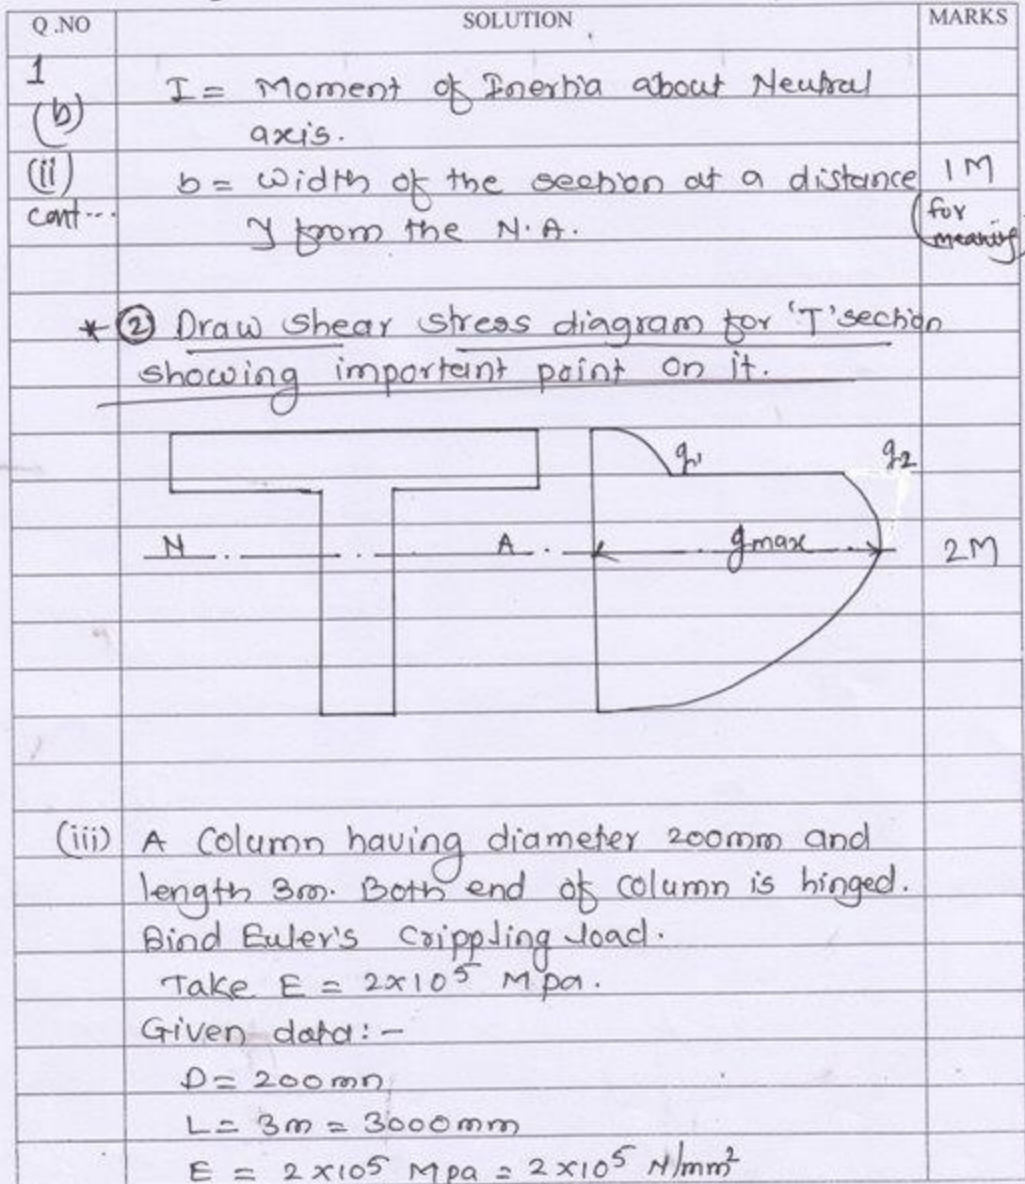 Q.NO SOLUTION MARKS
1
(b)
(ii)
cont...
I = Moment of Inertia about Neutral
axis.
b = width of the section at a distance 1M
y from the N.A. (for
meaning)
* ② Draw shear stress diagram for 'T' section
showing important point on it.
q1 q2
N A qmax 2M
(iii) A Column having diameter 200mm and
length 3m. Both end of column is hinged.
Find Euler's Crippling load.
Take E = 2x10⁵ Mpa.
Given data:-
D = 200mm
L = 3m = 3000mm
E = 2x10⁵ Mpa = 2x10⁵ N/mm²